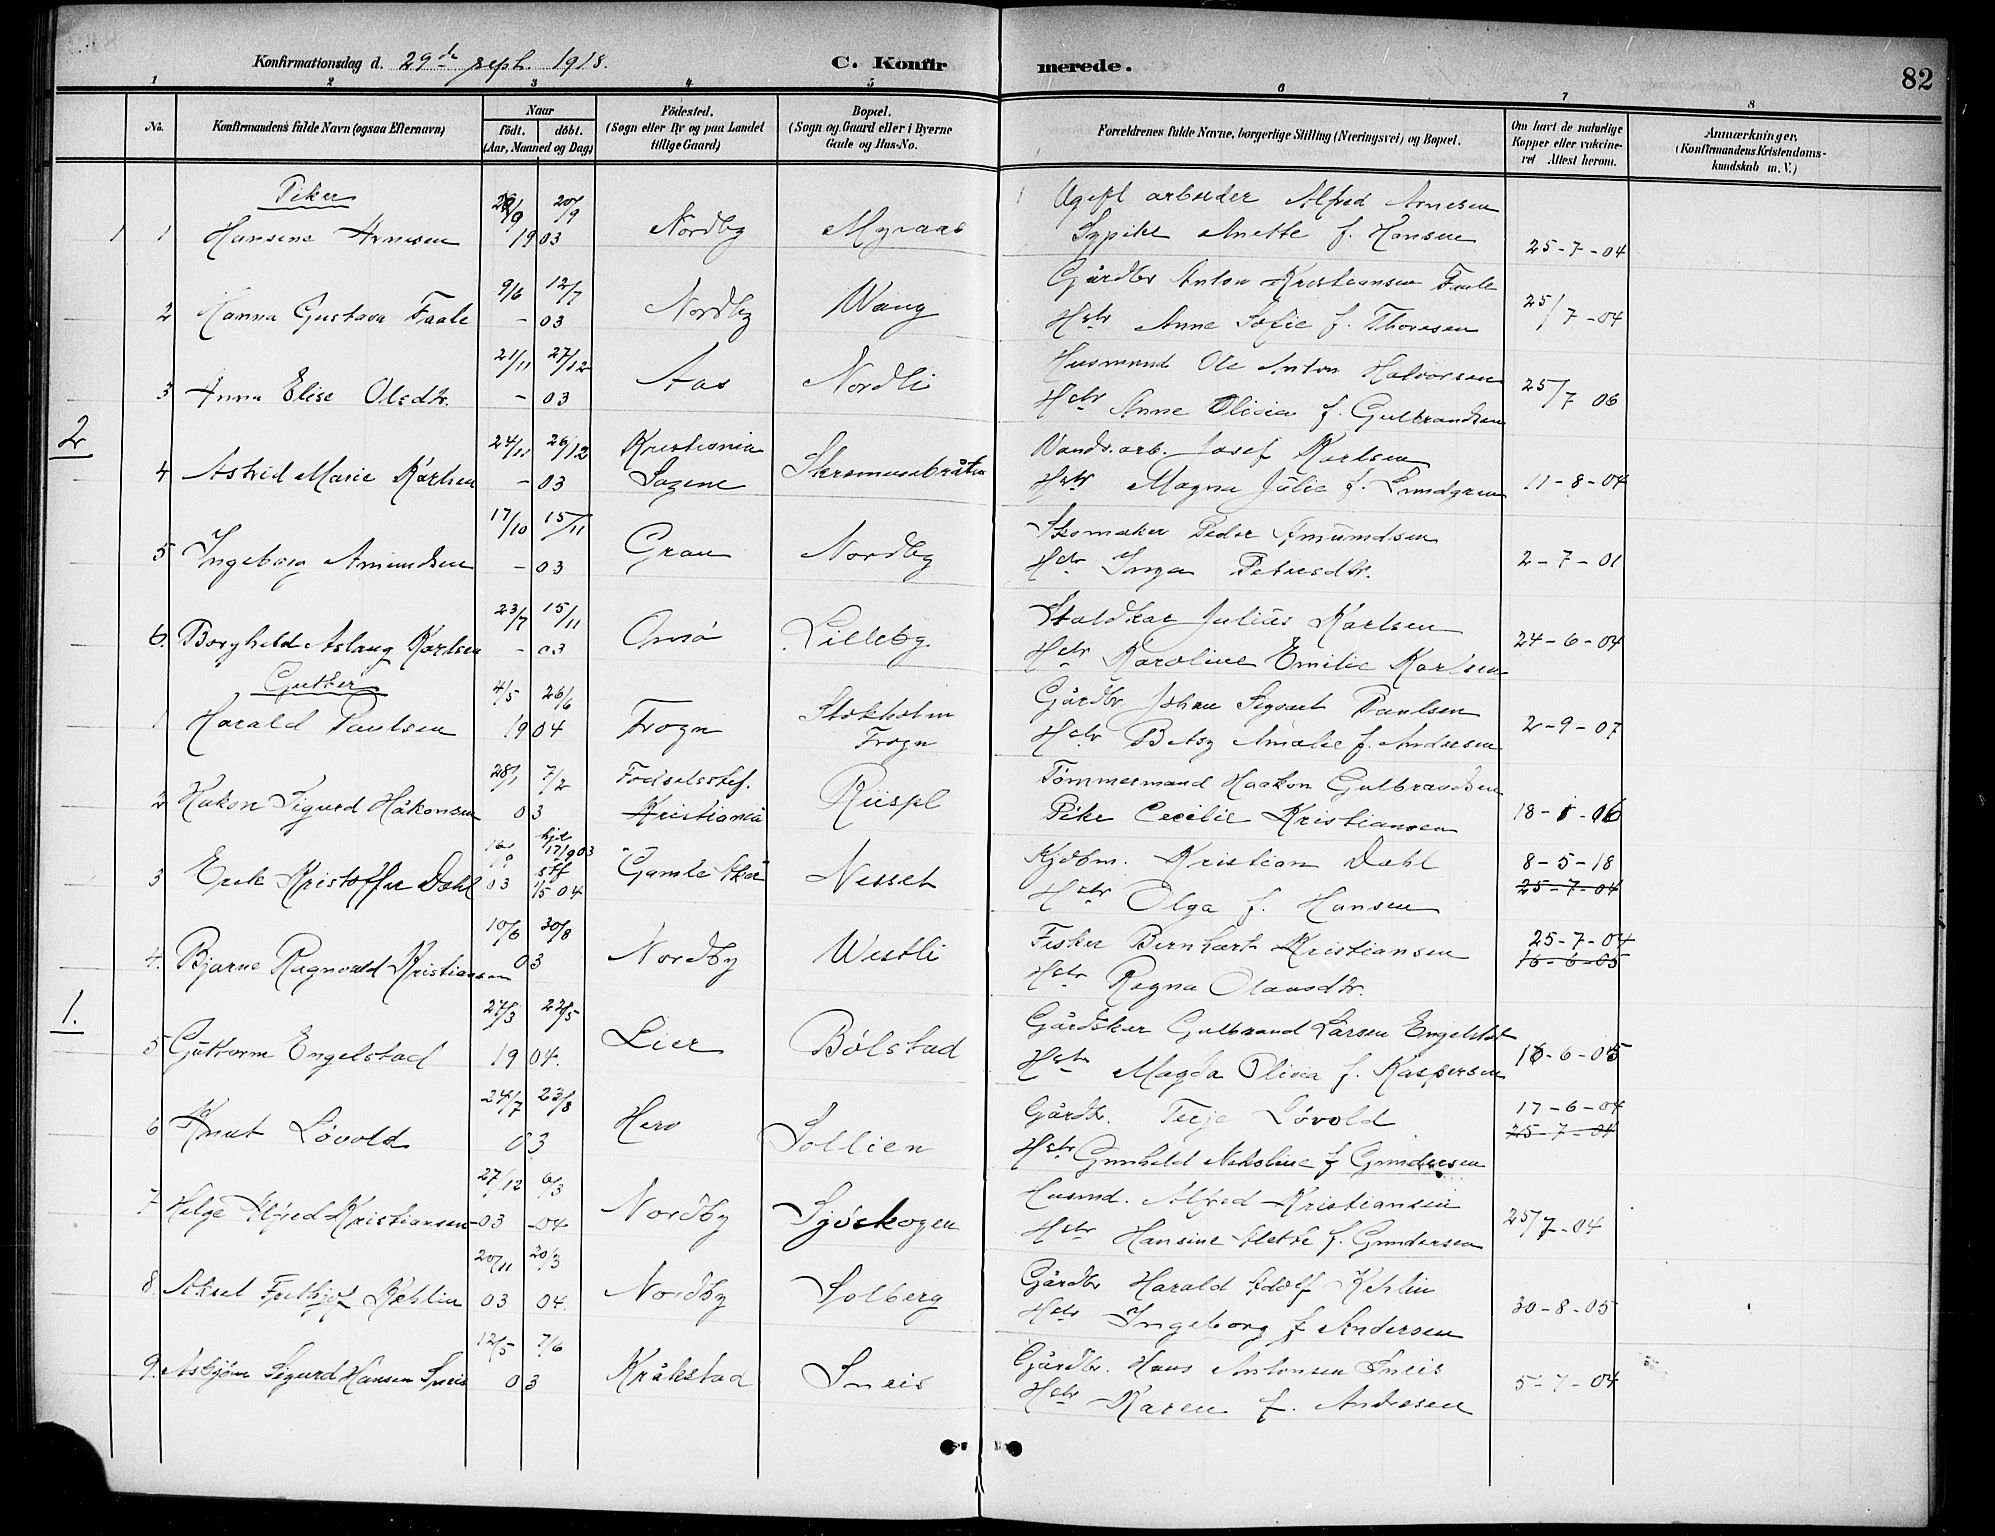 Konfirmationsdag d. 29de sept. 1918. C. Konfirmerede. 82
1 2 3 4 5 6 7 8
No. Konfirmandens fulde Navn (ogsaa Efternavn) Naar født. døbt. (Aar, Maaned og Dag) Fødested. (Sogn eller By og paa Landet tillige Gaard) Bopæl. (Sogn og Gaard eller i Byerne Gade og Hus-No. Forældrenes fulde Navne, borgerlige Stilling (Næringsvei) og Bopæl. Om havt de naturlige Kopper eller vakcineret Attest herom. Anmærkninger. (Konfirmandens Kristendomskundskab m. V.)
Piker
1 1 Hansine Arnesen /9 20/9 1903 Nordby Myraas Ugift arbeider Alfred Arnesen
Sypike Anette f. Hansen 25-7-04
2 Hanna Gustava Faale 9/6 12/7 - 03 Nordby Wang Gårdbr Anton Kristiansen Faale
Hstr Anne Sofie f. Thoresen 25/7-04
3 Anna Elise Olsdtr. 21/11 27/12 - 03 Aas Nordli Husmand Ole Anton Halvorsen
Hstr Anne Olivia f. Gulbrandsen 25/7 06
2
4 Astrid Marie Karlsen 24/11 26/12 - 03 Kristiania Sagene Skremmesbråten Vandv.arb. Josef Karlsen
Hstr Magna Julie f. Lundgren 11-8-04
5 Ingeborg Amundsen 17/10 15/11 - 03 Gran Nordby Skomaker Peder Amundsen
Hstr Inga Petersdtr. 2-7-01
6. Borghild Aslaug Karlsen 23/7 15/11 - 03 Onsø Lilleby Staldkar Julius Karlsen
Hstr Karoline Emilie Karlsen 24-6-04
Gutter
1 Harald Paulsen 4/5 26/6 1904 Frogn Stokholm Frogn Gårdbr Johan Sigvart Paulsen
Hstr Betsy Amalie f. Andersen 2-9-07
2 Hakon Sigurd Håkonsen 28/1 7/2 03 Fødselsstif. Kristiania Riispl Tømmermand Haakon Gulbrandsen
Pike Cecilie Kristiansen 18-1-06
3 Erik Kristoffer Dahl /9 03 hjd 17/9 03 stf 1/5 04 Gamle Aker Nesset Kjøbm. Kristian Dahl 8-5-18
Hstr Olga f. Hansen 25-7-04
4. Bjarne Ragnvald Kristiansen 10/6 30/8 03 Nordby Westli Fisker Bernhart Kristiansen 25-7-04
Hstr Ragna Olausdtr. 16-6-05
1.
5 Guttorm Engelstad 27/3 22/5 1904. Lier Bølstad Gårdskar Gulbrand Larsen Engelstad
Hstr Magda Olivia f. Kaspersen 16-6-05
6 Knut Løvold 24/7 23/8 03 Herø Sollien Gårdbr. Terje Løvold 17-6-04
Hstr Gunhild Nikoline f Gundersen 25-7-04
7 Helge Alfred Kristiansen 27/12 6/3 -03 -04 Nordby Sjøskogen Husmd. Alfred Kristiansen
Hstr Hansine Alette f. Gundersen 25/7-04
8. Aksel Fridtjof Kehlin 20/11 20/3 03 04. Nordby Solberg Gårdbr Harald Adolf Kehlin
Hstr Ingeborg f Andersen 30-8-05
9. Asbjørn Sigurd Hansen Sneis 12/5 7/6 03 Kråkstad Sneis Gårdbr. Hans Antonsen Sneis
Hstr Karen f. Andresen 5-7-04